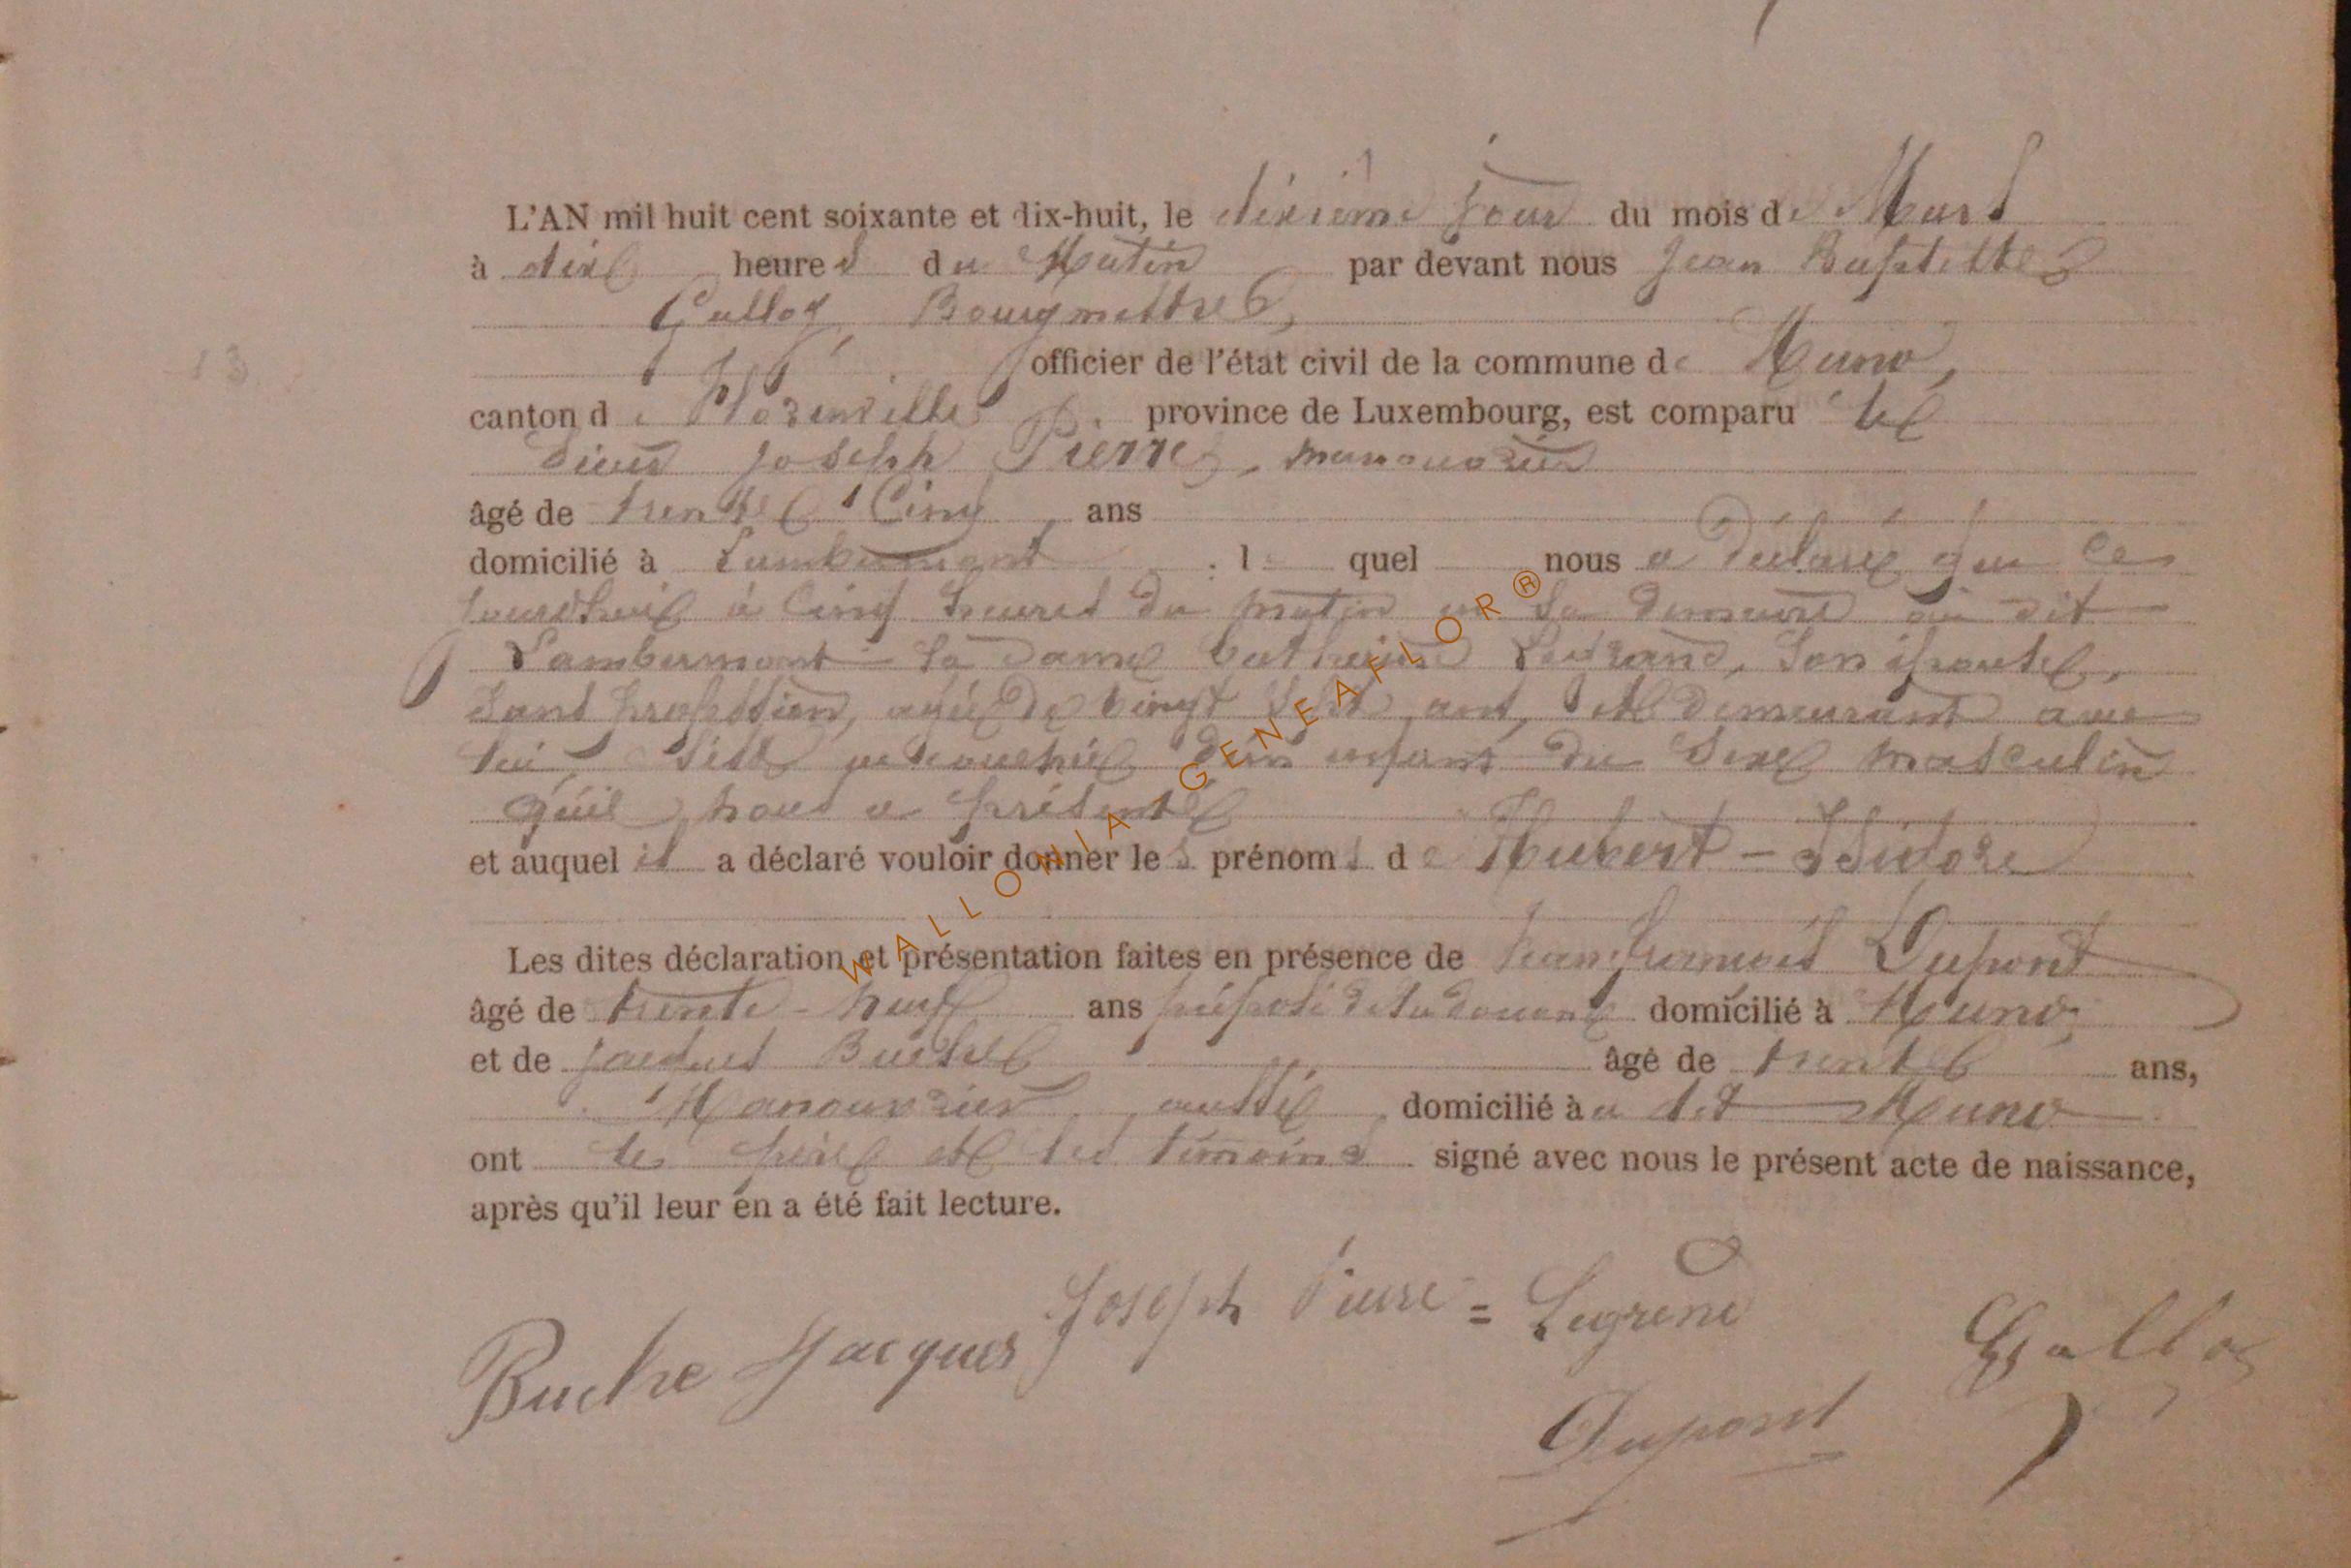 L'AN mil huit cent soixante et dix-huit, le dixième jour du mois de Mars
à dix heures du Matin par devant nous Jean Baptiste
Galloy, Bourgmettre,
officier de l'état civil de la commune de Muno,
13
canton de Florenville province de Luxembourg, est comparu le
Sieur Joseph Pierre, manouvrier
âgé de trente Cinq ans
domicilié à Lambermont lequel nous a Déclaré que ce
jourd'hui à Cinq heures du matin en sa demeure au dit
Lambermont la Dame Catherine son épouse,
sans profession, agée de vingt sept ans, et demeurant avec
lui, s'est accouchée d'un enfant du sexe masculin
qu'il nous a présenté
et auquel il a déclaré vouloir donner les prénoms de Hubert - Isidore
Les dites déclaration et présentation faites en présence de Jean François Dupont
âgé de trente-neuf ans préposé de la douane domicilié à Muno
et de Jacques Buchel âgé de trente ans,
Manouvrier, aussi domicilié à u dit Muno
ont le père et les témoins signé avec nous le présent acte de naissance,
après qu'il leur en a été fait lecture.
Joseph Pierre =
Buche Jacques
Galloy
Dupont
WALLONIA GENEAFLOR®